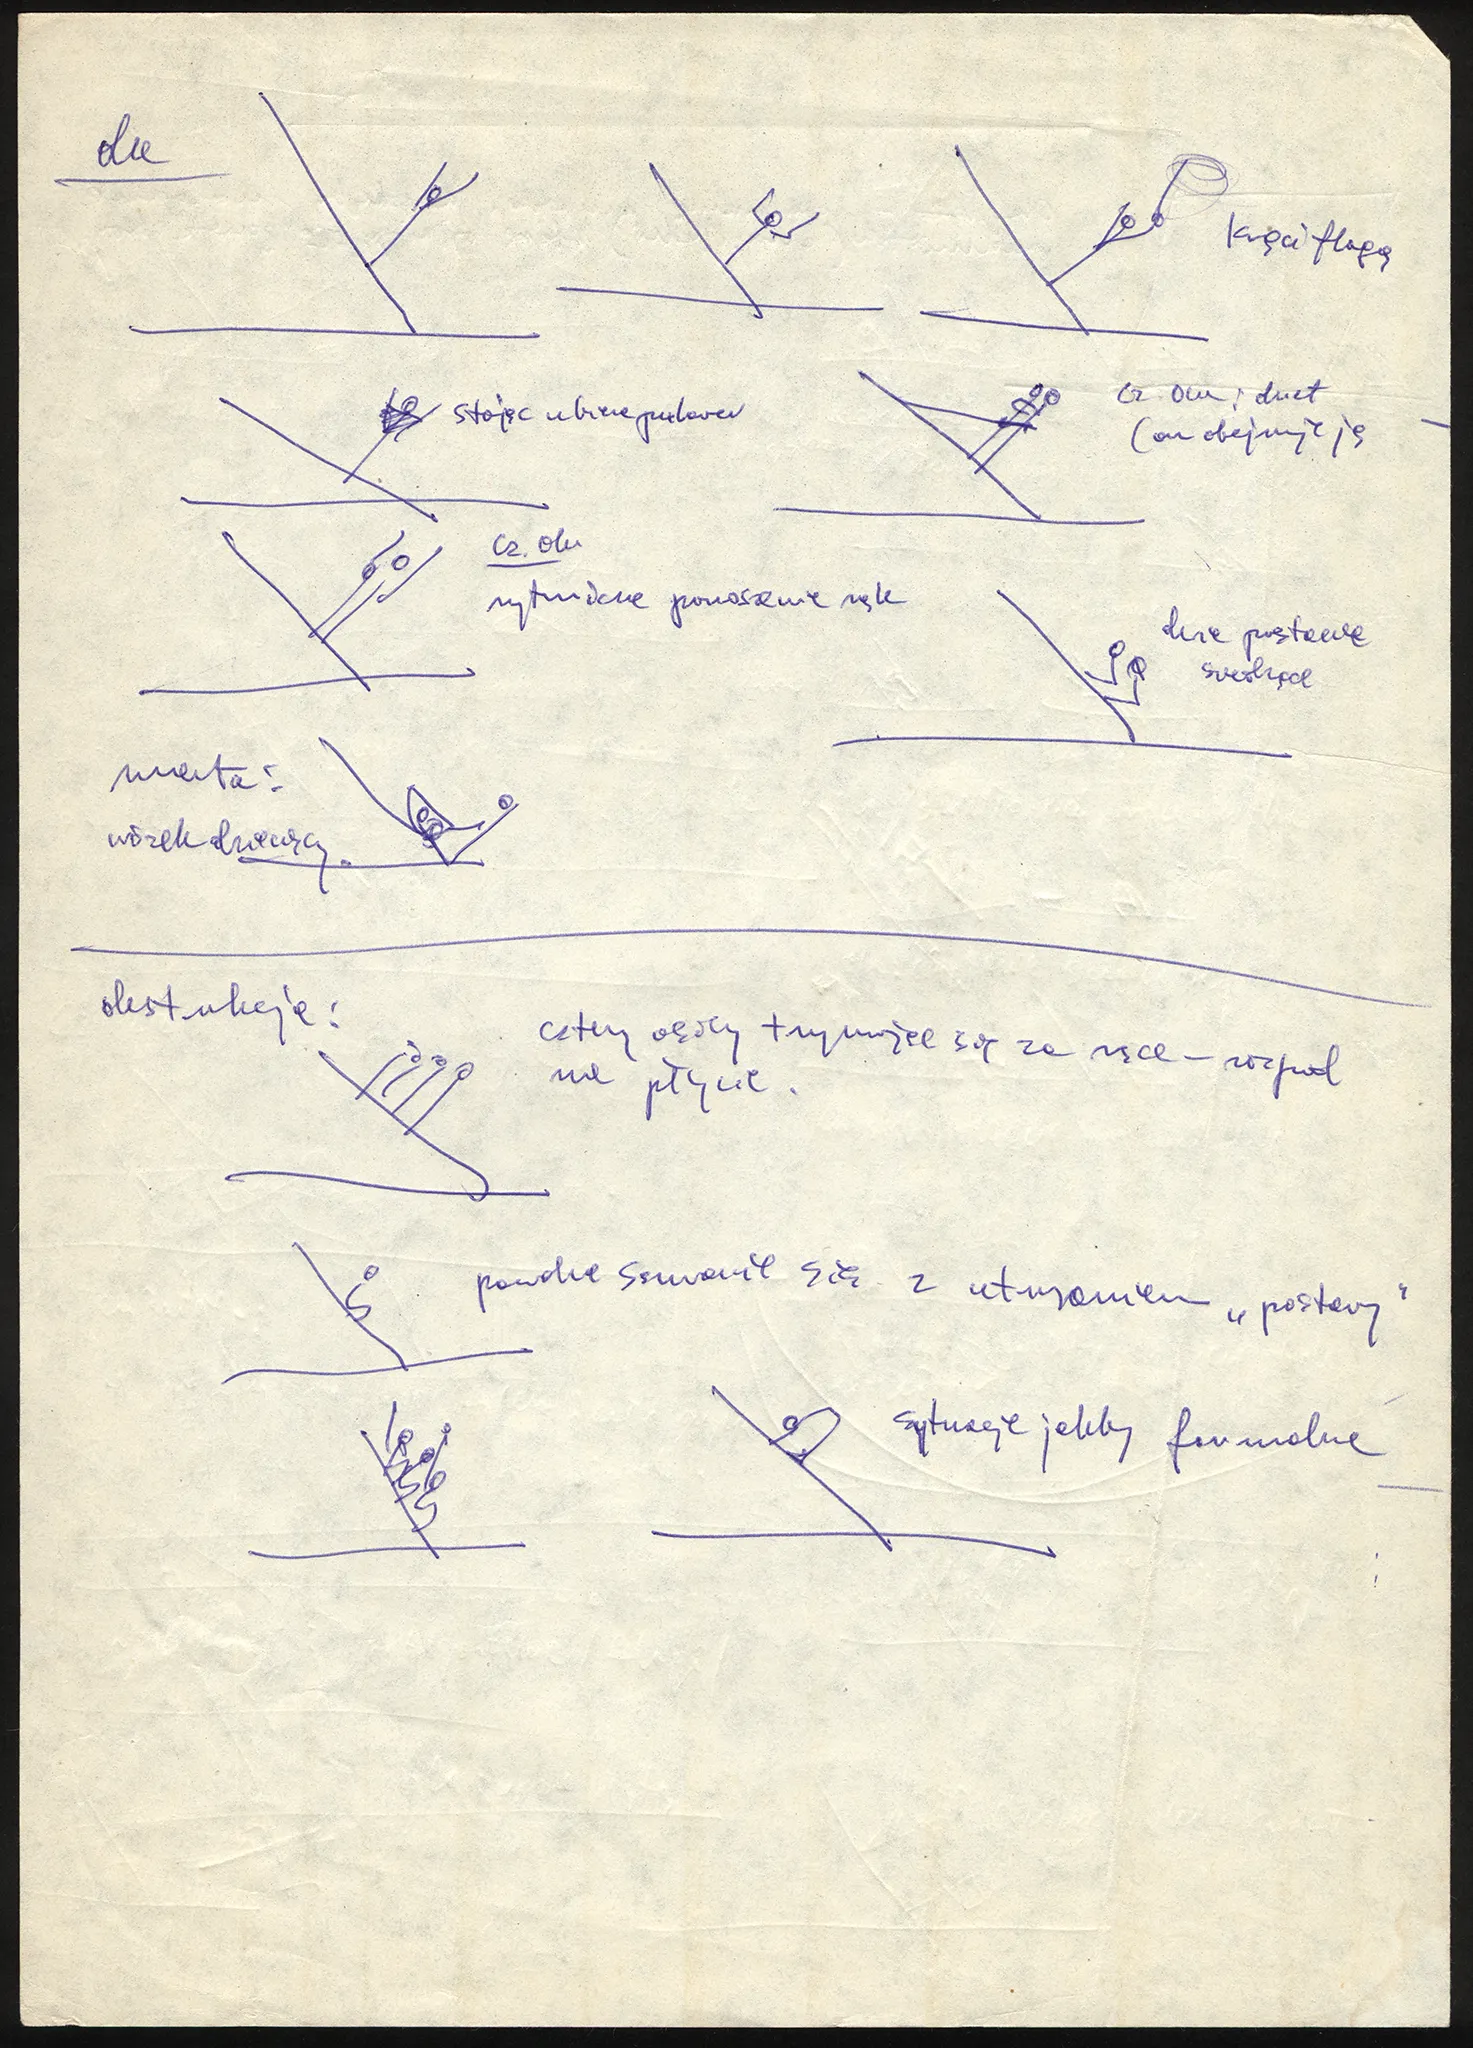 kręci flagą
stojąc ubiera pulower
cz. olu i duet
(on obejmuje ją
cz. olu
rytmiczne ponoszenie rąk
dwie postacie
siedzące
warta:
wózek dziecięcy.
obstrukcja:
cztery osoby trzymające się za ręce – rozpad
na płycie.
powolne zsuwanie się z utrzymaniem „postawy"
sytuacje jakby formalne